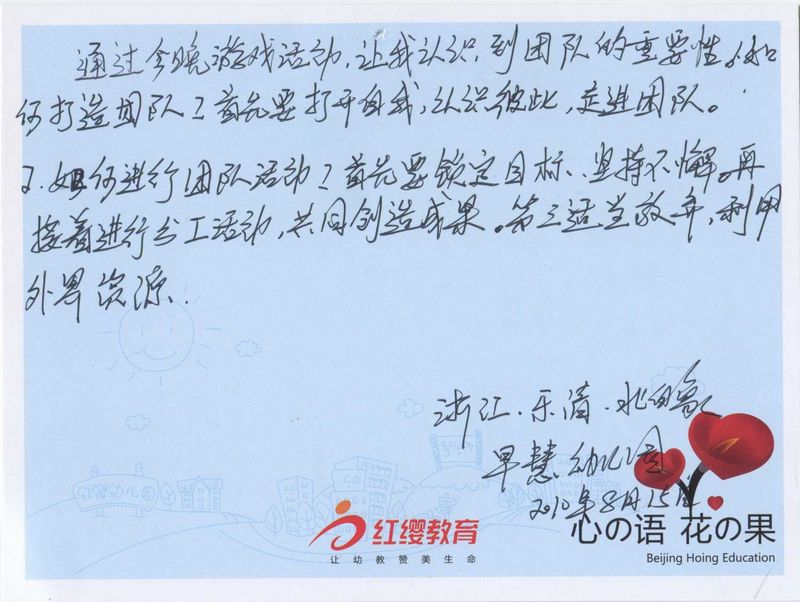 通过今晚游戏活动,让我认识到团队的重要性。如
何打造团队?首先要打开自我,认识彼此,走进团队。
2.如何进行团队活动?首先要锁定目标、坚持不懈。再
接着进行分工活动,共同创造成果。第三适当放弃,利用
外界资源.
浙江·乐清·北白象
早慧幼儿园
2010年8月15日
红缨幼儿园
红缨教育
让幼教赞美生命
心の语 花の果
Beijing Hoing Education